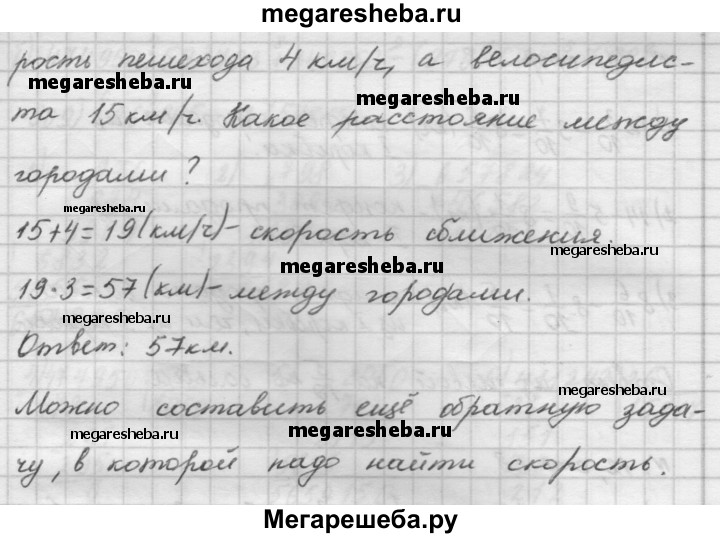 megaresheba.ru
рость пешехода 4 км/ч, а велосипедис-
megaresheba.ru
megaresheba.ru
та 15 км/ч. Какое расстояние между
городами?
megaresheba.ru
15+4=19(км/ч)-скорость сближения.
megaresheba.ru
megaresheba.ru
19·3=57(км)-между городами.
megaresheba.ru
Ответ: 57км.
megaresheba.ru
Можно составить ещё обратную зада-
megaresheba.ru
megaresheba.ru
чу, в которой надо найти скорость.
Мегарешеба.ру